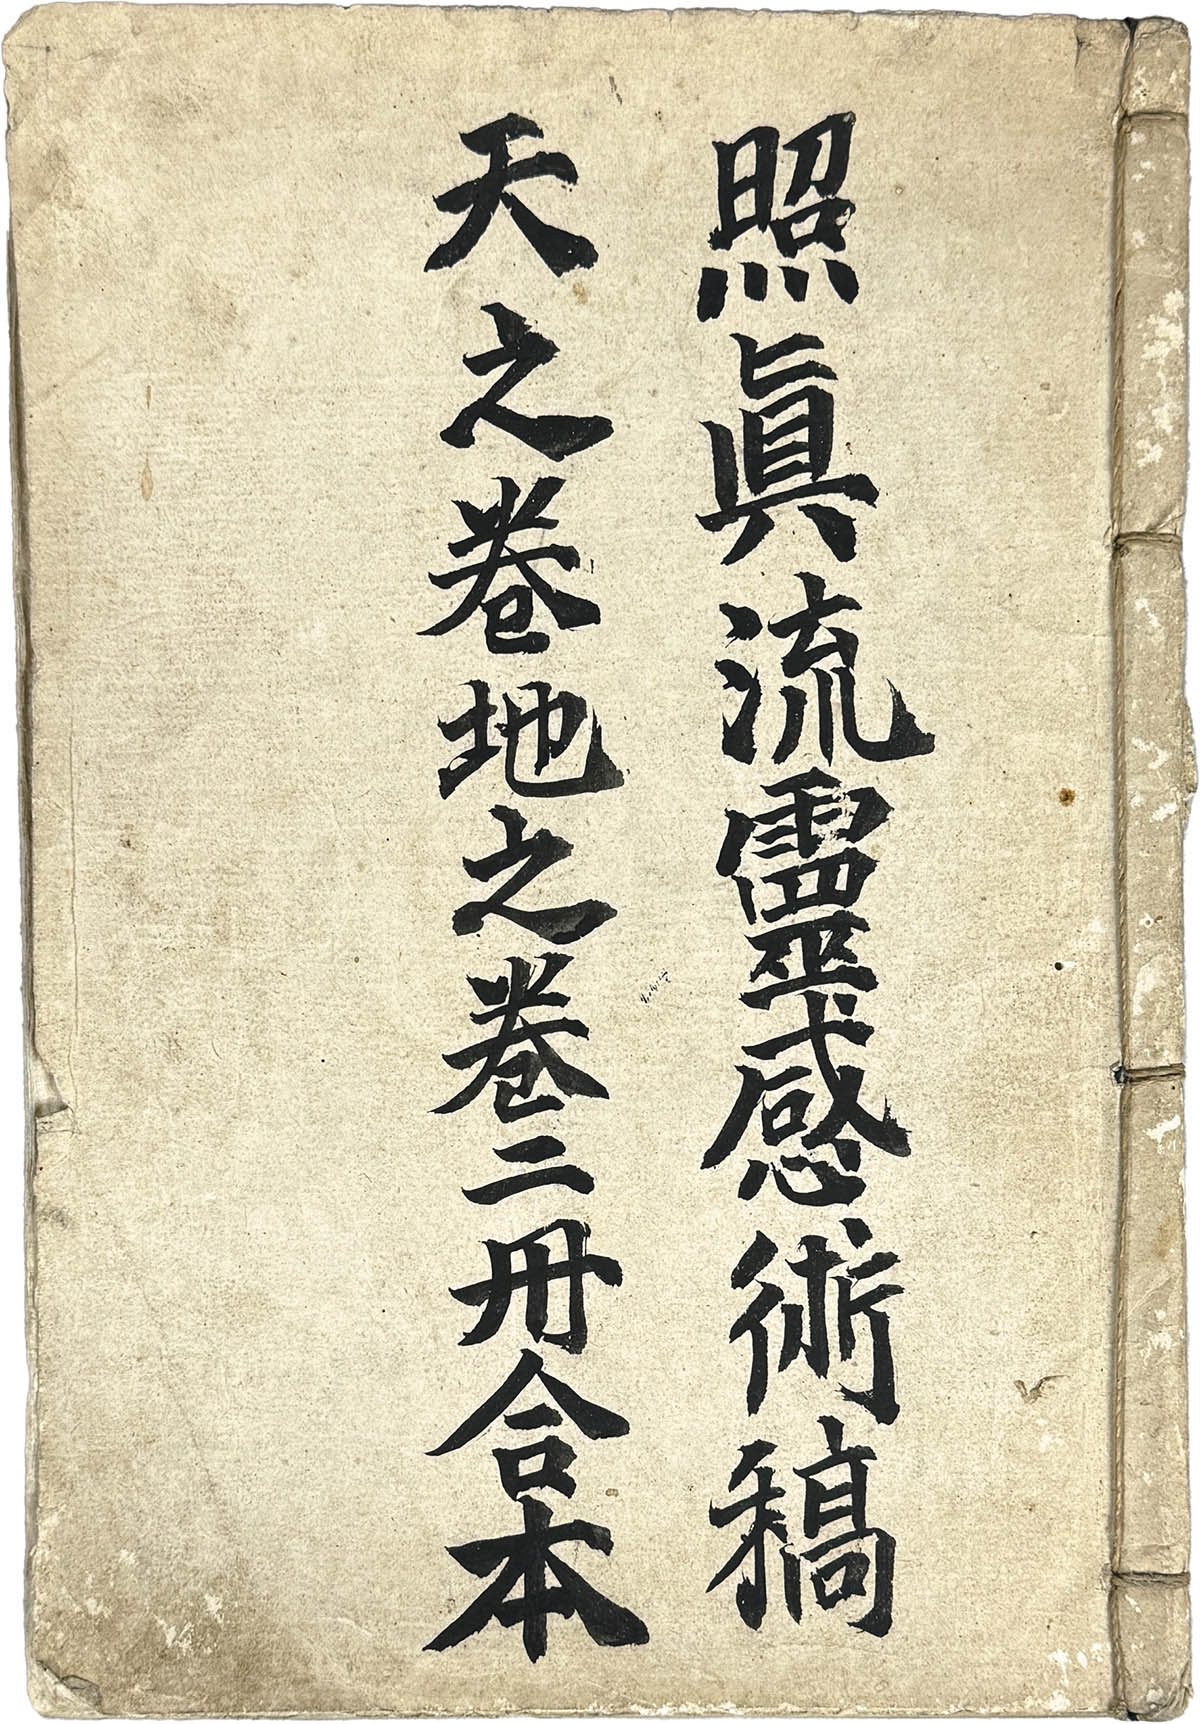 照眞流靈感術稿
天之卷地之卷二冊合本